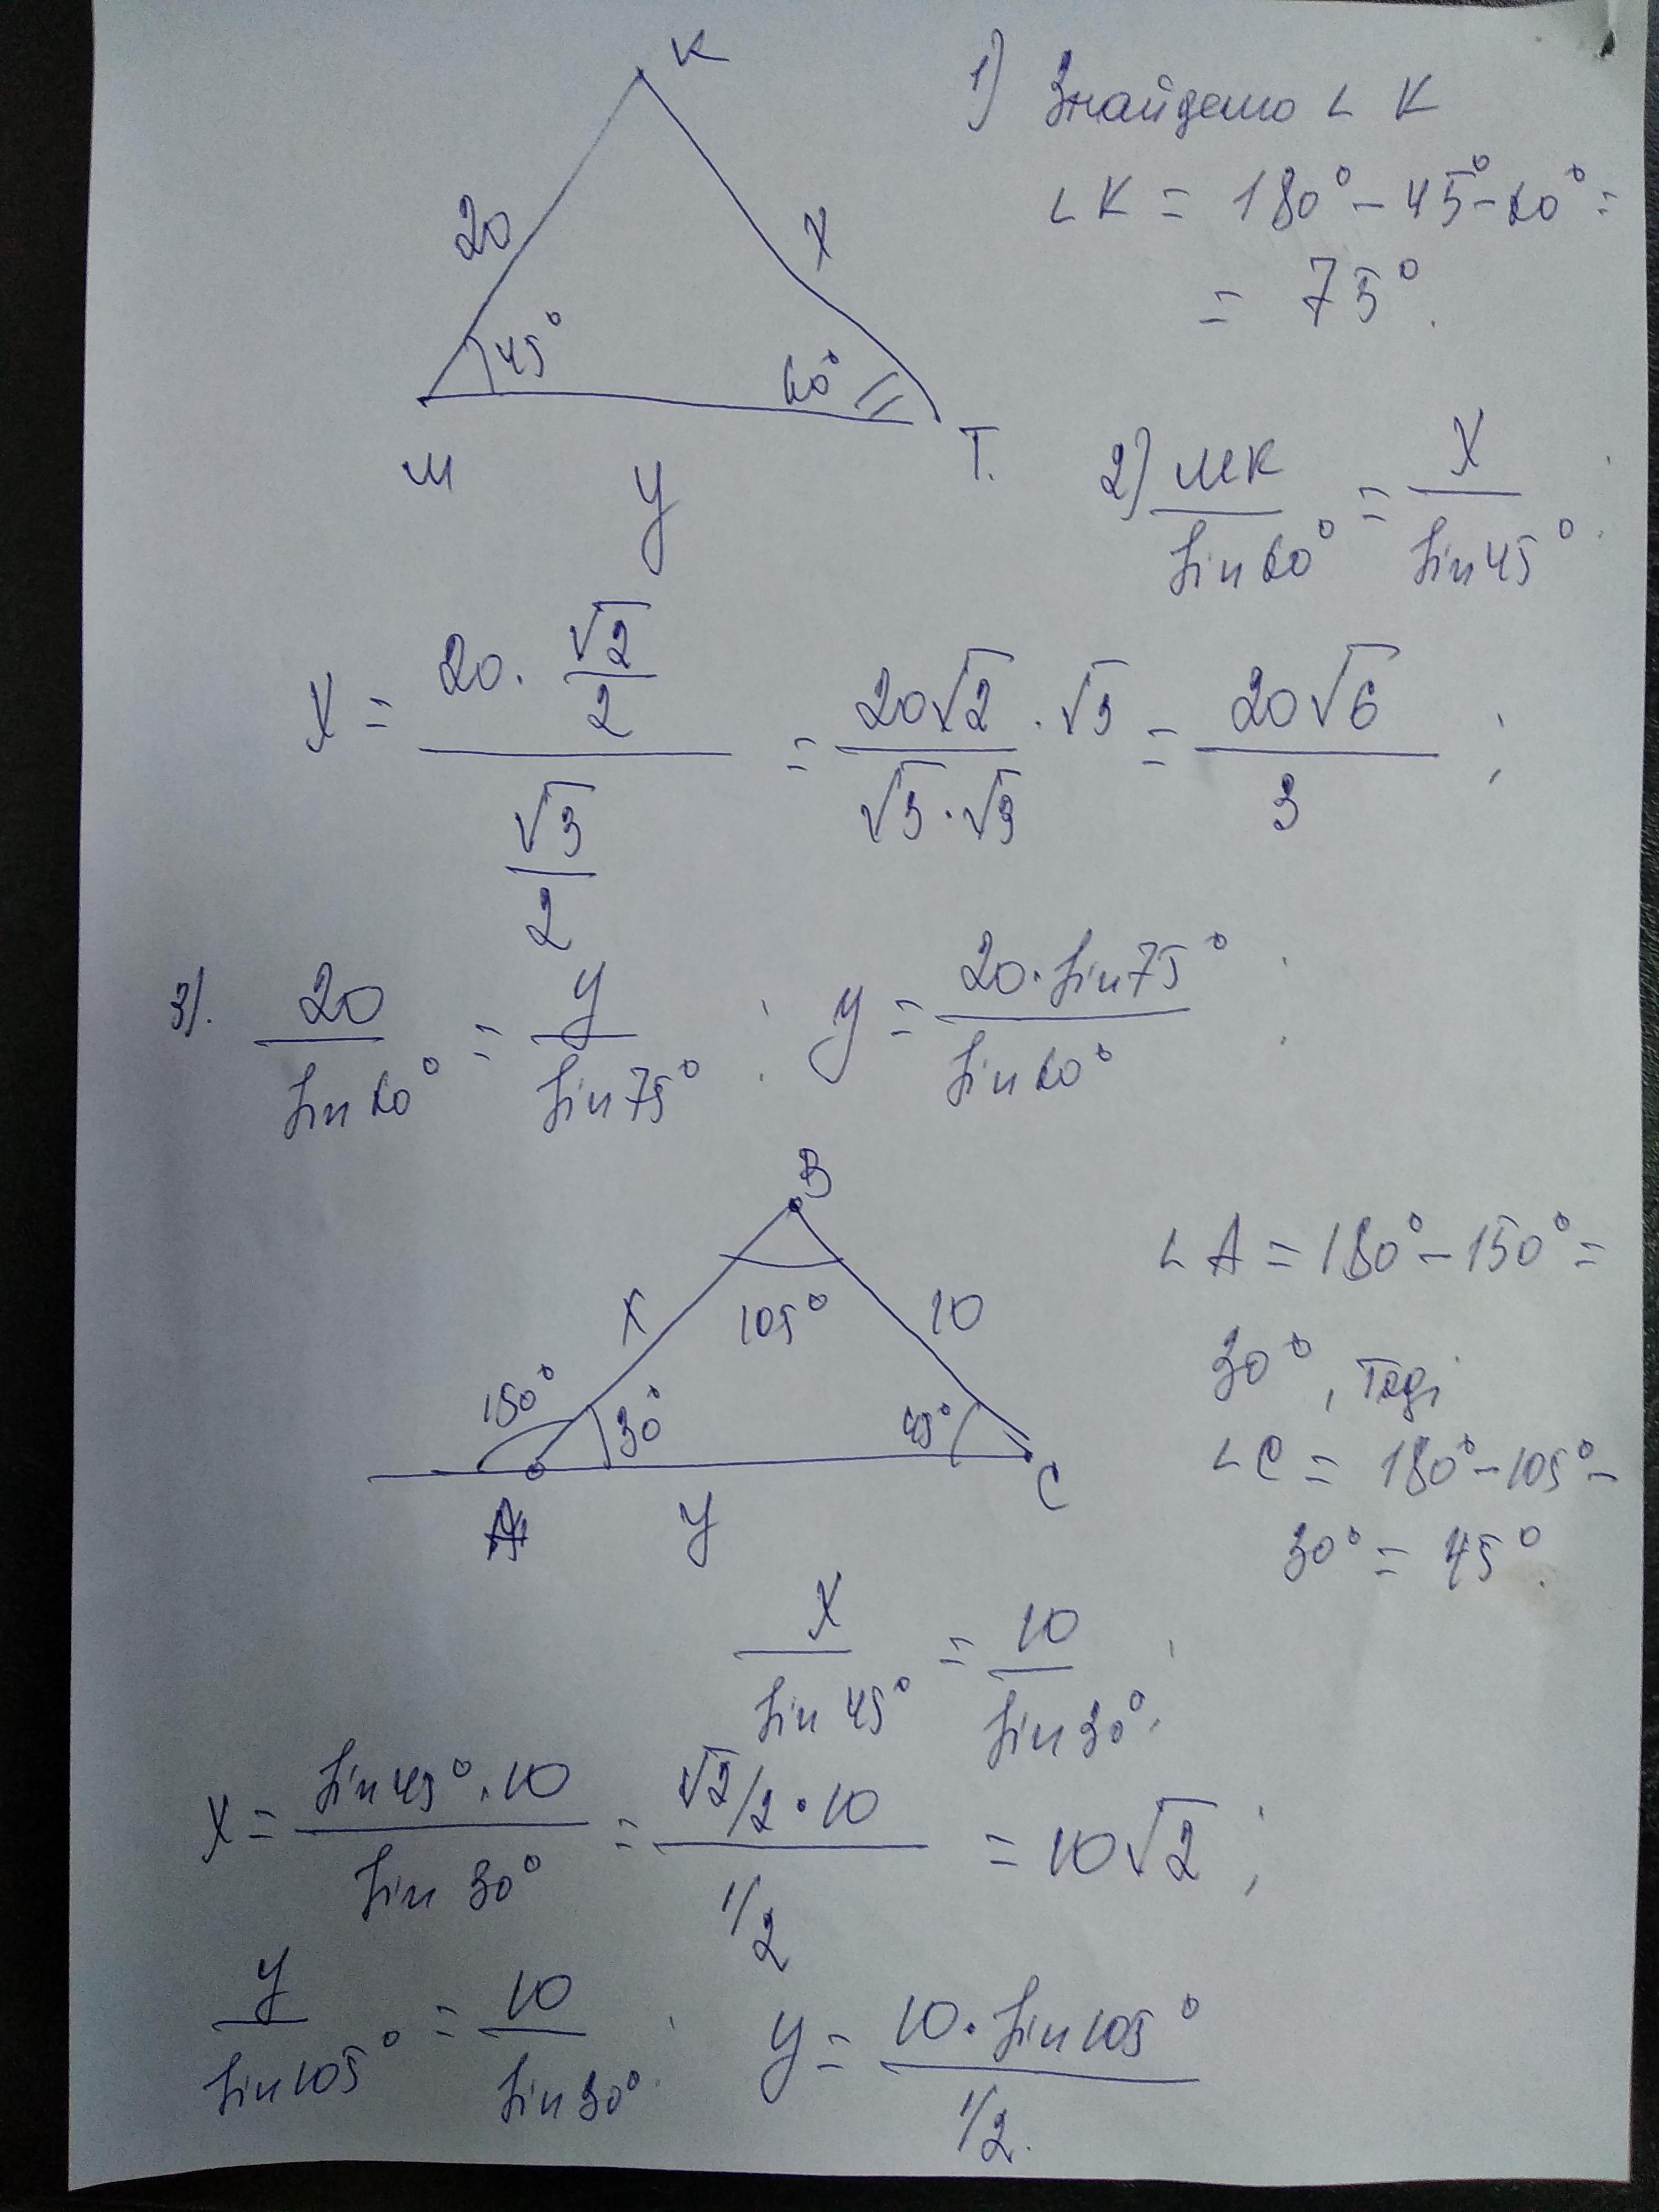 K
20
X
45°
60°
M
T.
y
1) Знайдемо ∠ K
∠ K = 180° - 45° - 60° =
= 75°.
2) MK / sin 60° = X / sin 45° ;
X = (20 · √2/2) / (√3/2) = (20√2 · √3) / (√3 · √3) = 20√6 / 3 ;
3). 20 / sin 60° = y / sin 75° ; y = 20 · sin 75° / sin 60° ;
B
X
105°
10
150°
30°
45°
A
y
C
∠ A = 180° - 150° =
30°, Тоді
∠ C = 180° - 105° -
30° = 45°.
X / sin 45° = 10 / sin 30° ;
X = sin 45° · 10 / sin 30° = (√2/2 · 10) / (1/2) = 10√2 ;
y / sin 105° = 10 / sin 30° ; y = 10 · sin 105° / (1/2).